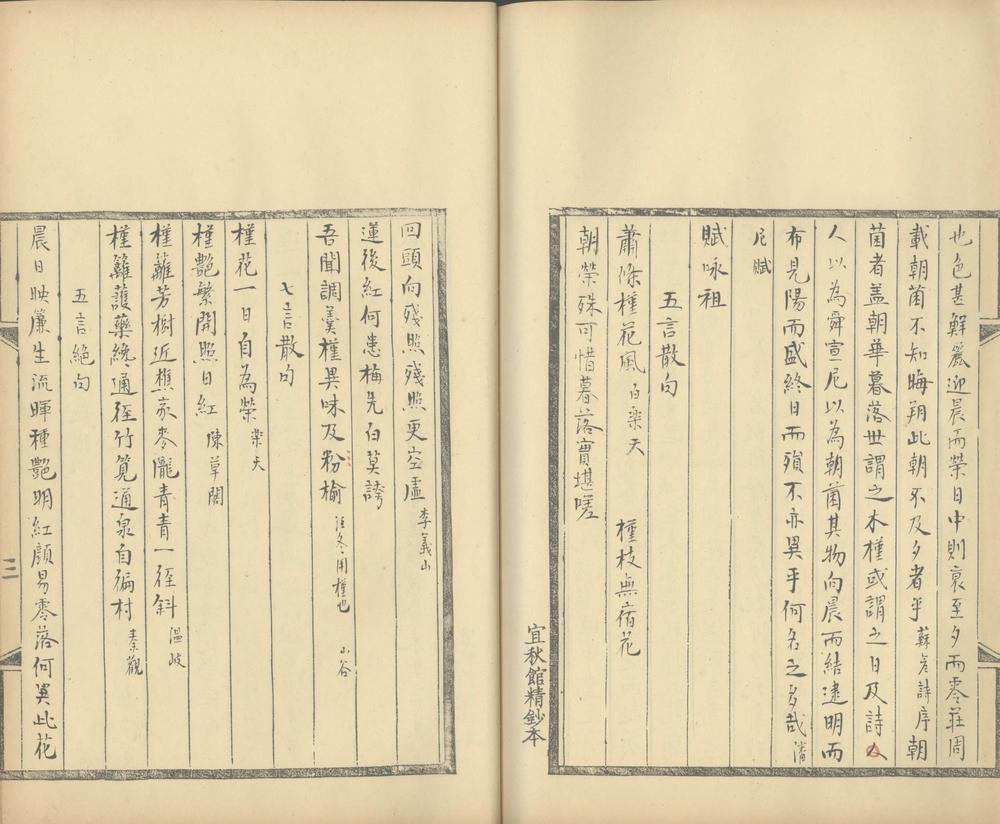 也色甚鮮麗迎晨而榮日中則衰至夕而零莊周
載朝菌不知晦朔此朝不及夕者乎蘇彥詩序朝
菌者盖朝華暮落世謂之木槿或謂之日及詩人
人以為舜宣尼以為朝菌其物向晨而結逮明而
布見陽而盛終日而殞不亦異乎何名之多哉潘
尼賦
賦咏祖
五言散句
蕭條槿花風白樂天 槿枝無宿花
朝榮殊可惜暮落實堪嗟
宜秋館精鈔本
回頭向殘照殘照更空虛李義山
蓮後紅何患梅先白莫誇
吾聞調羹槿異味及粉榆注冬用槿也 山谷
七言散句
槿花一日自為榮樂天
槿艷繁開照日紅陳草閣
槿籬芳樹近樵家麥隴青青一徑斜温岐
槿籬護藥纔通徑竹筧通泉自徧村秦觀
五言絕句
晨日映簾生流暉槿艷明紅顏易零落何異此花
三